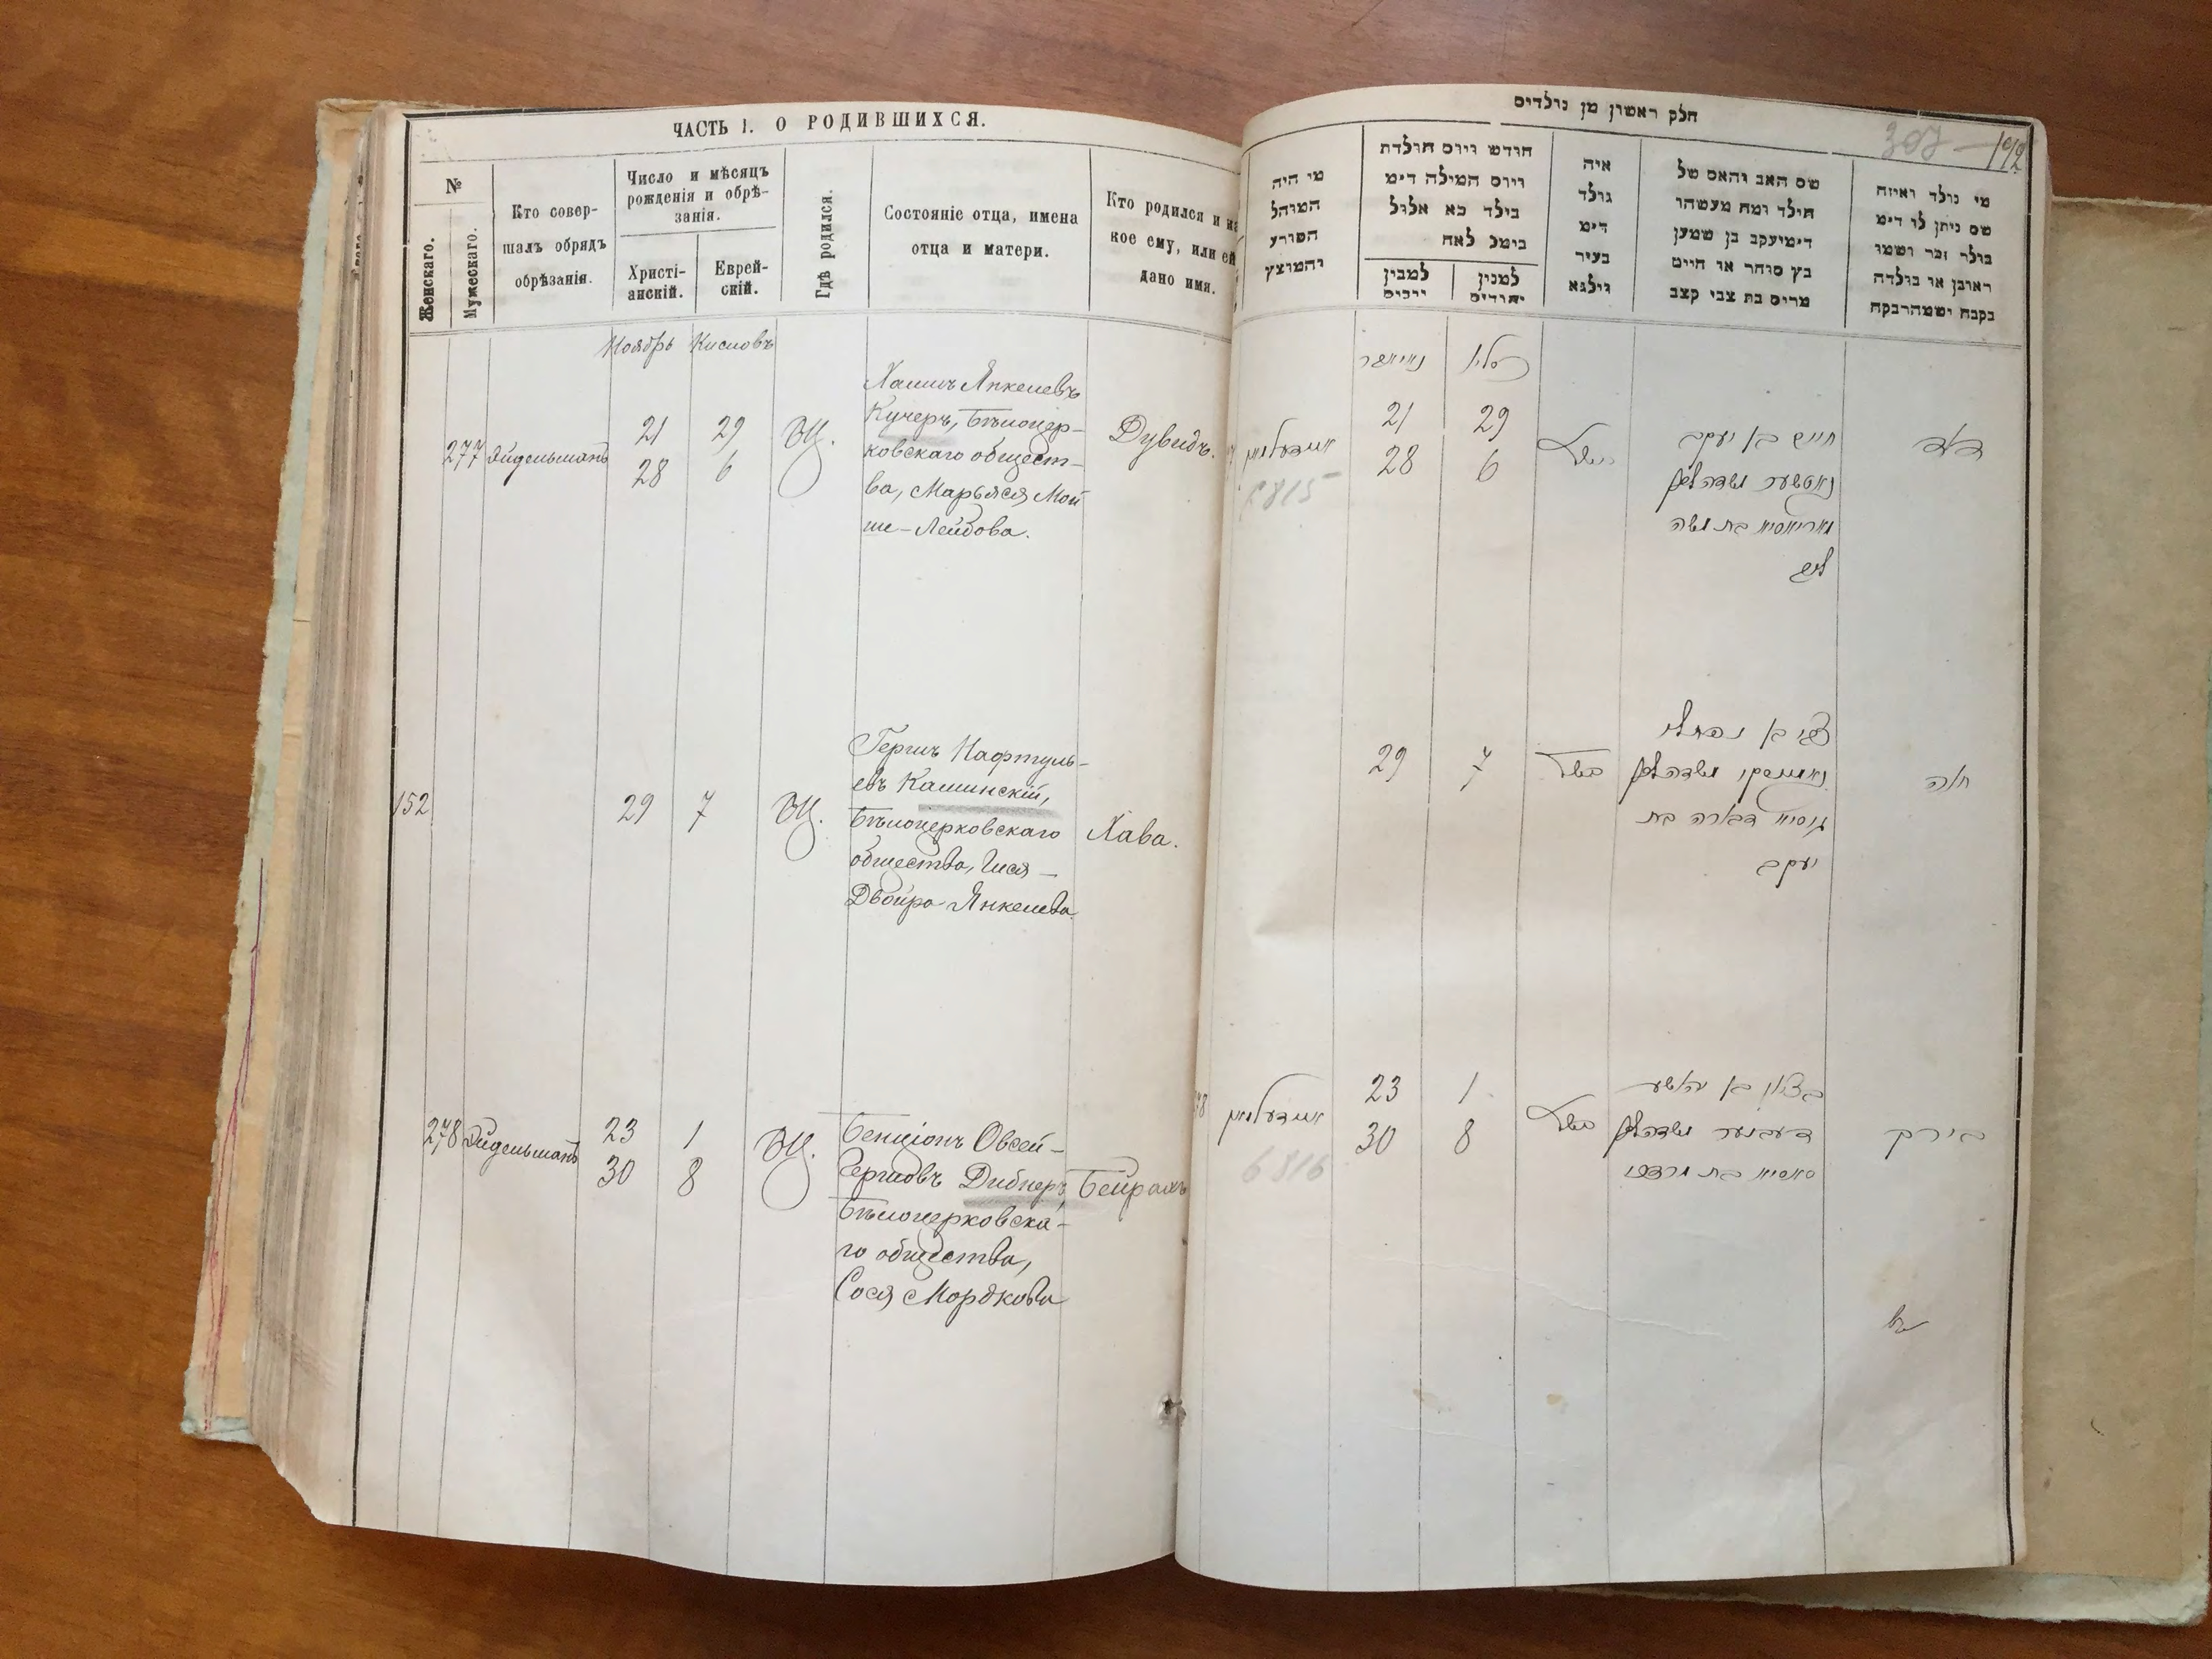 ЧАСТЬ I. О РОДИВШИХСЯ.
№
Женскаго.
Мужескаго.
Кто совер-
шалъ обрядъ
обрѣзанія.
Число и мѣсяцъ
рожденія и обрѣ-
занія.
Христі-
анскій.
Еврей-
скій.
Гдѣ родился.
Состояніе отца, имена
отца и матери.
Кто родился и ка
кое ему, или ей
дано имя.
Ноябрь Кисловъ
277 Эйдельманъ
21 29
28 6
БЦ.
Хаимъ Янкелевъ
Кучеръ, Бѣлоцер-
ковскаго общест-
ва, Марьяся Мой
ше-Лейбова.
Дувидъ.
152
29 7
БЦ.
Гершъ Нафтуль-
евъ Каминскій,
Бѣлоцерковскаго
общества, Гися-
Двойра Янкелева.
Хава.
278 Эйдельманъ
23 1
30 8
БЦ.
Бенціонъ Овсей-
Гершовъ Дибнеръ,
Бѣлоцерковска-
го общества,
Сося Мордкова
Бейрахъ
חלק ראשון מן נולדים
307 192
מי היה
המוהל
הפורע
והמוצץ
חודש ויום הולדת
ויום המילה דימ
בילד כא אלול
למנין
יהודים
איה
נולד
דימ
בעיר
ווילנא
שם האב והאם של
הילד ומה מעשהו
דימיעקב בן שמען
כץ סוחר או חייט
מרים בת צבי קצב
מי נולד ואיזה
שם ניתן לו דימ
נולד זכר ושמו
ראובן או נולדה
נקבה ושמהרבקה
נאיאבר כסליו
איידעלמאן
6815
21 29
28 6
חיים בן יעקב
מאריאסיא בת משה
ליב
דוד
29 7
צבי בן נפתלי
גיסיא דבורה בת
יעקב
חוה
איידעלמאן
6816
23 1
30 8
בן ציון בן יהושע
סאסיא בת מרדכי